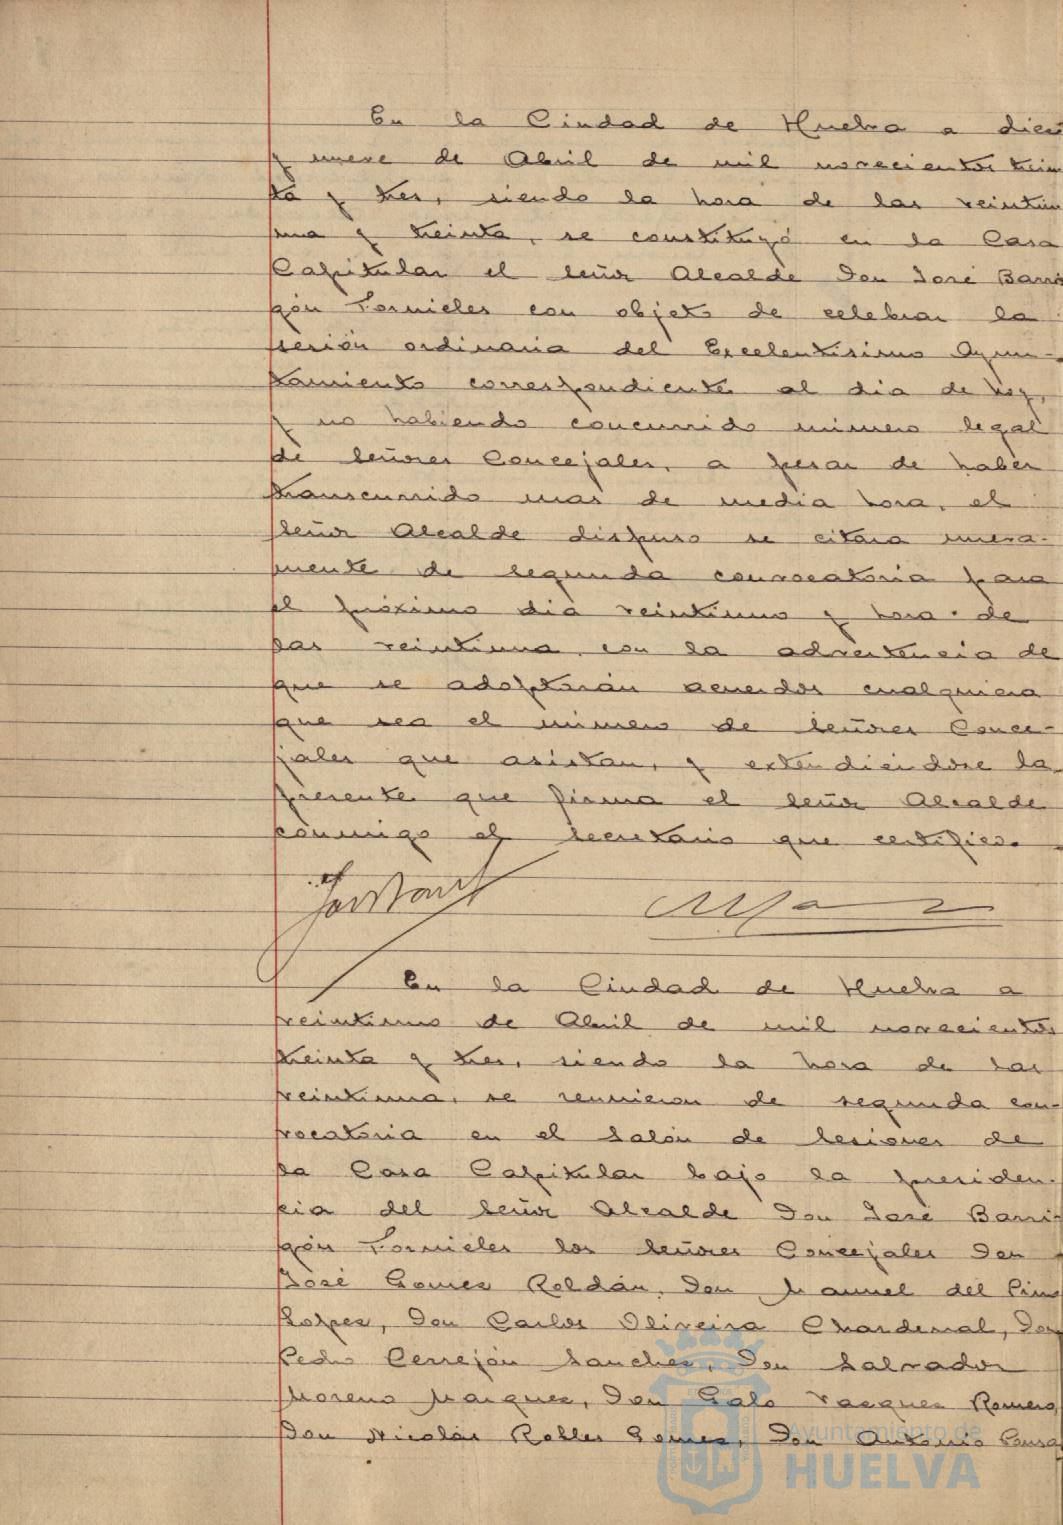 En la Ciudad de Huelva a diez
y nueve de Abril de mil novecientos trein
ta y tres, siendo la hora de las veintiu
na y treinta, se constituyó en la Casa
Capitular el Señor Alcalde Don José Barri
gón Fornieles con objeto de celebrar la
sesión ordinaria del Excelentísimo Ayun-
tamiento correspondiente al dia de hoy,
y no habiendo concurrido número legal
de Señores Concejales, a pesar de haber
transcurrido mas de media hora, el
Señor Alcalde dispuso se citara nueva-
mente de segunda convocatoria para
el próximo dia veintiuno y hora de
las veintiuna, con la advertencia de
que se adoptarán acuerdos cualquiera
que sea el número de Señores Conce-
jales que asistan, y extendiéndose la
presente que firma el Señor Alcalde
conmigo el Secretario que certifico.
En la Ciudad de Huelva a
veintiuno de Abril de mil novecientos
treinta y tres, siendo la hora de las
veintiuna, se reunieron de segunda con-
vocatoria en el Salón de Sesiones de
la Casa Capitular bajo la presiden-
cia del Señor Alcalde Don José Barri-
gón Fornieles los Señores Concejales Don
José Gomez Roldán, Don Manuel del Pino
Lopez, Don Carlos Oliveira Chardenal, Don
Pedro Cerrejón Sanchez, Don Salvador
Moreno Marquez, Don Galo Vazquez Romero,
Don Nicolás Robles Gomez, Don Antonio
Ayuntamiento de
HUELVA